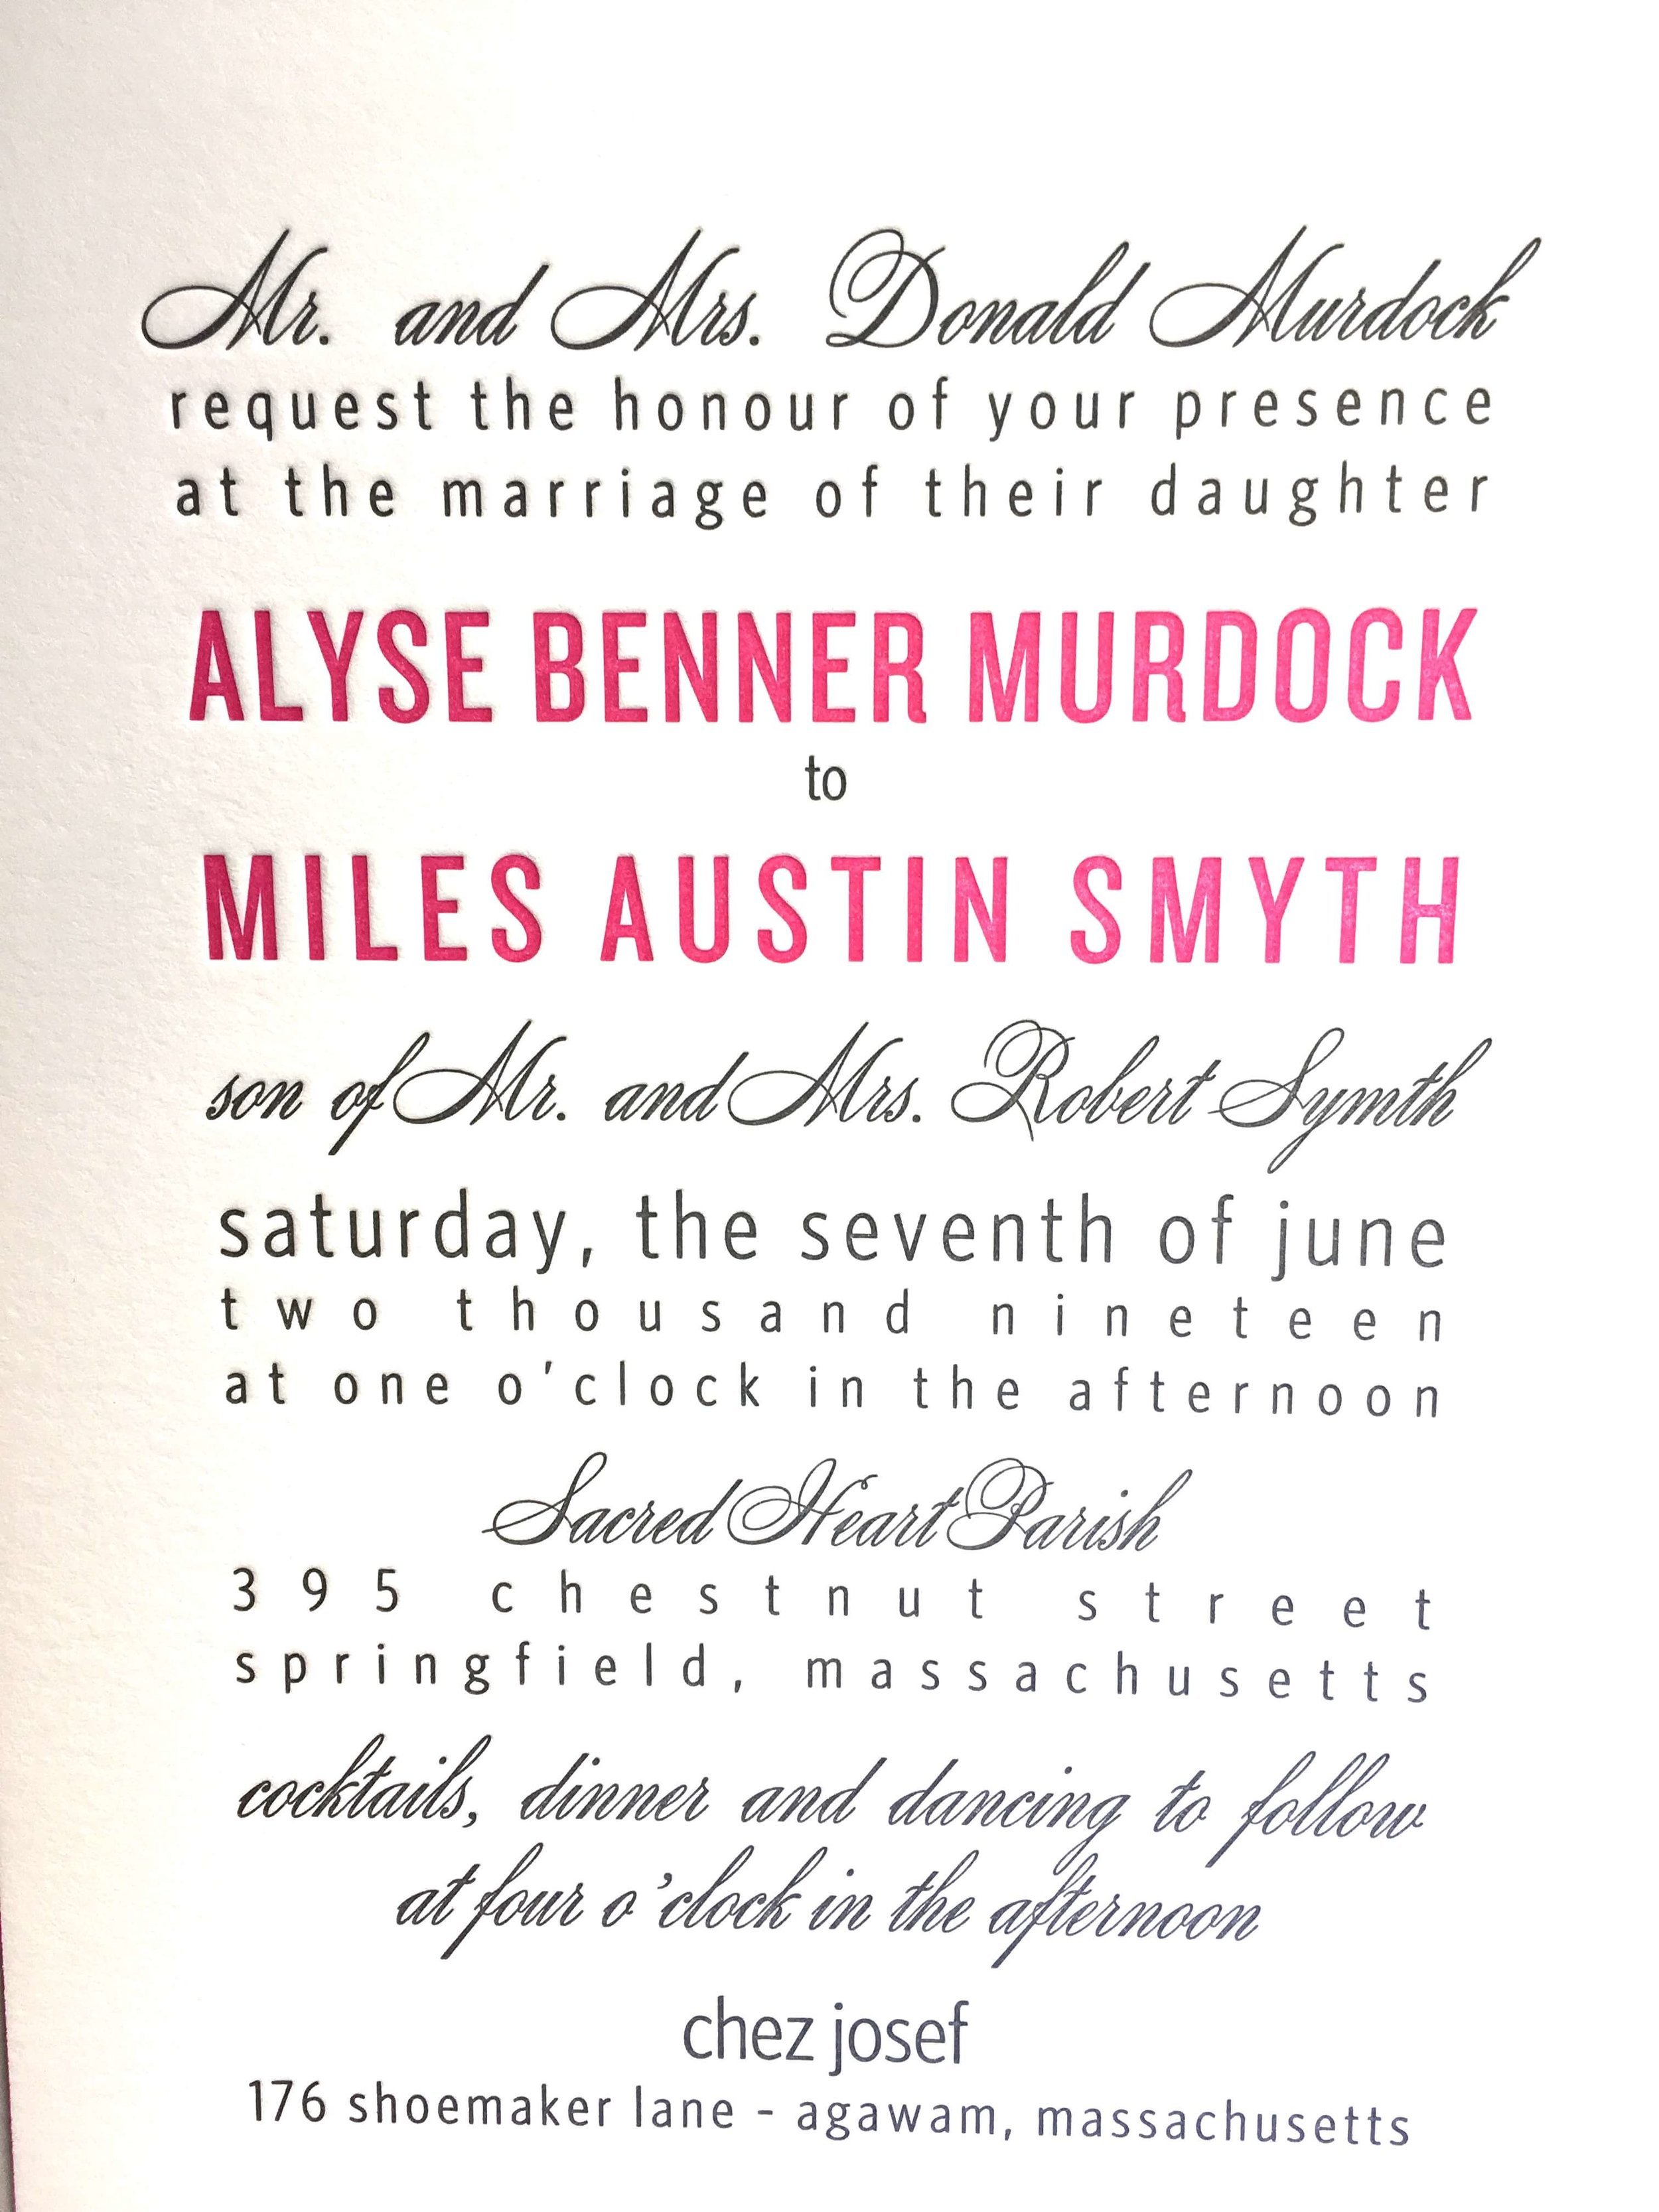 Mr. and Mrs. Donald Murdock
request the honour of your presence
at the marriage of their daughter
ALYSE BENNER MURDOCK
to
MILES AUSTIN SMYTH
son of Mr. and Mrs. Robert Symth
saturday, the seventh of june
two thousand nineteen
at one o'clock in the afternoon
Sacred Heart Parish
395 chestnut street
springfield, massachusetts
cocktails, dinner and dancing to follow
at four o'clock in the afternoon
chez josef
176 shoemaker lane - agawam, massachusetts